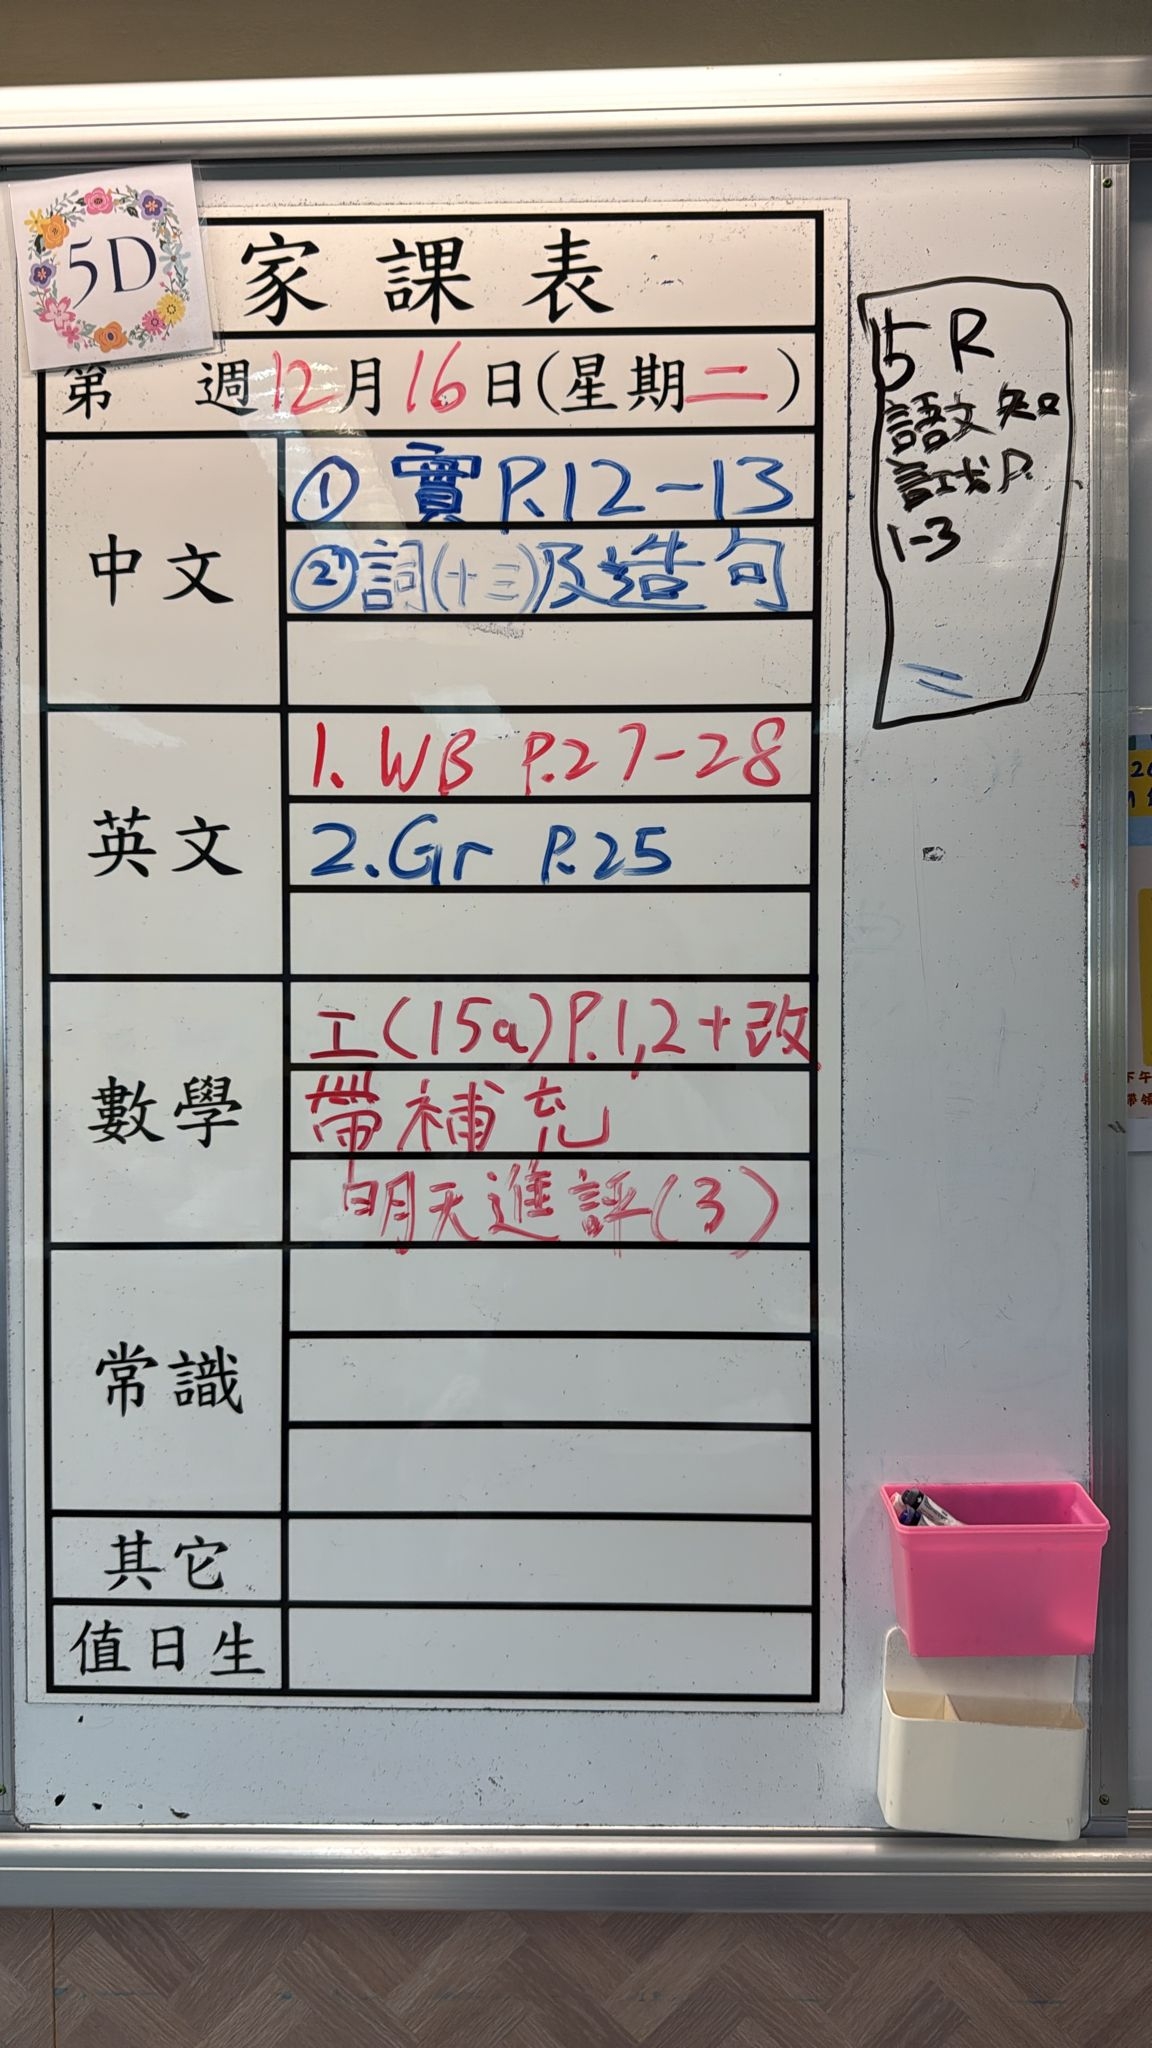 5D
家課表
第 週12月16日(星期二)
中文
① 實 P.12-13
②詞(十三)及造句
英文
1. WB P.27-28
2. Gr P.25
數學
工(15a)P.1,2+改
帶補充
明天進評(3)
常識
其它
值日生
5R
語文知
試 P.
1-3
下午
帶領